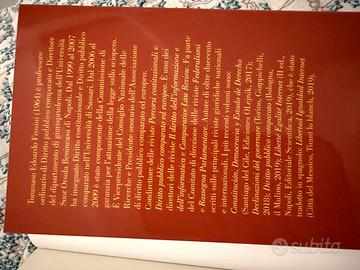 Tommaso Edoardo Frosini (1964) è professore
ordinario di Diritto pubblico comparato e Direttore
del dipartimento di giurisprudenza dell'Università
Suor Orsola Benincasa di Napoli. Dal 1999 al 2007
ha insegnato Diritto costituzionale e Diritto pubblico
comparato nell'Università di Sassari. Dal 2006 al
2009 è stato componente della Commissione di
garanzia per l'attuazione della legge sullo sciopero.
È Vicepresidente del Consiglio Nazionale delle
Ricerche e Presidente onorario dell'Associazione
di diritto pubblico comparato ed europeo.
Condirettore delle riviste Percorsi costituzionali e
Diritto pubblico comparato ed europeo. È uno dei
direttori delle riviste Il diritto dell'informazione e
dell'informatica e Comparative Law Review. Fa parte
del Comitato di direzione delle riviste Federalismi
e Rassegna Parlamentare. Autore di oltre duecento
scritti sulle principali riviste giuridiche nazionali
e internazionali, tra i più recenti volumi:
Constitución, Democracia y Estado de Derecho
(Santiago del Cile, Ediciones Olejnik, 2017);
Declinazioni del governare (Torino, Giappichelli,
2018); Diritto pubblico comparato (Bologna,
il Mulino, 2019); Liberté Egalité Internet (II ed.,
Napoli, Editoriale Scientifica, 2019), che è stato
tradotto in spagnolo: Libertad Igualdad Internet
(Città del Messico, Tirant lo blanch, 2019).
subito